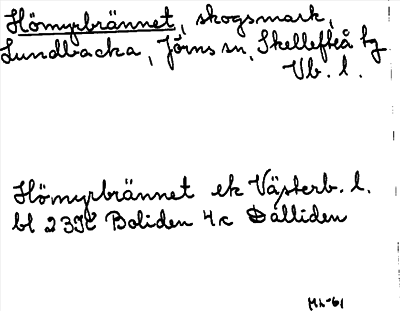 Hömyrbrännet, skogsmark,
Lundbacka, Jörns sn, Skellefteå tg
Vb. l.
Hömyrbrännet ek Västerb. l.
bl 23K Boliden 4c Dalliden